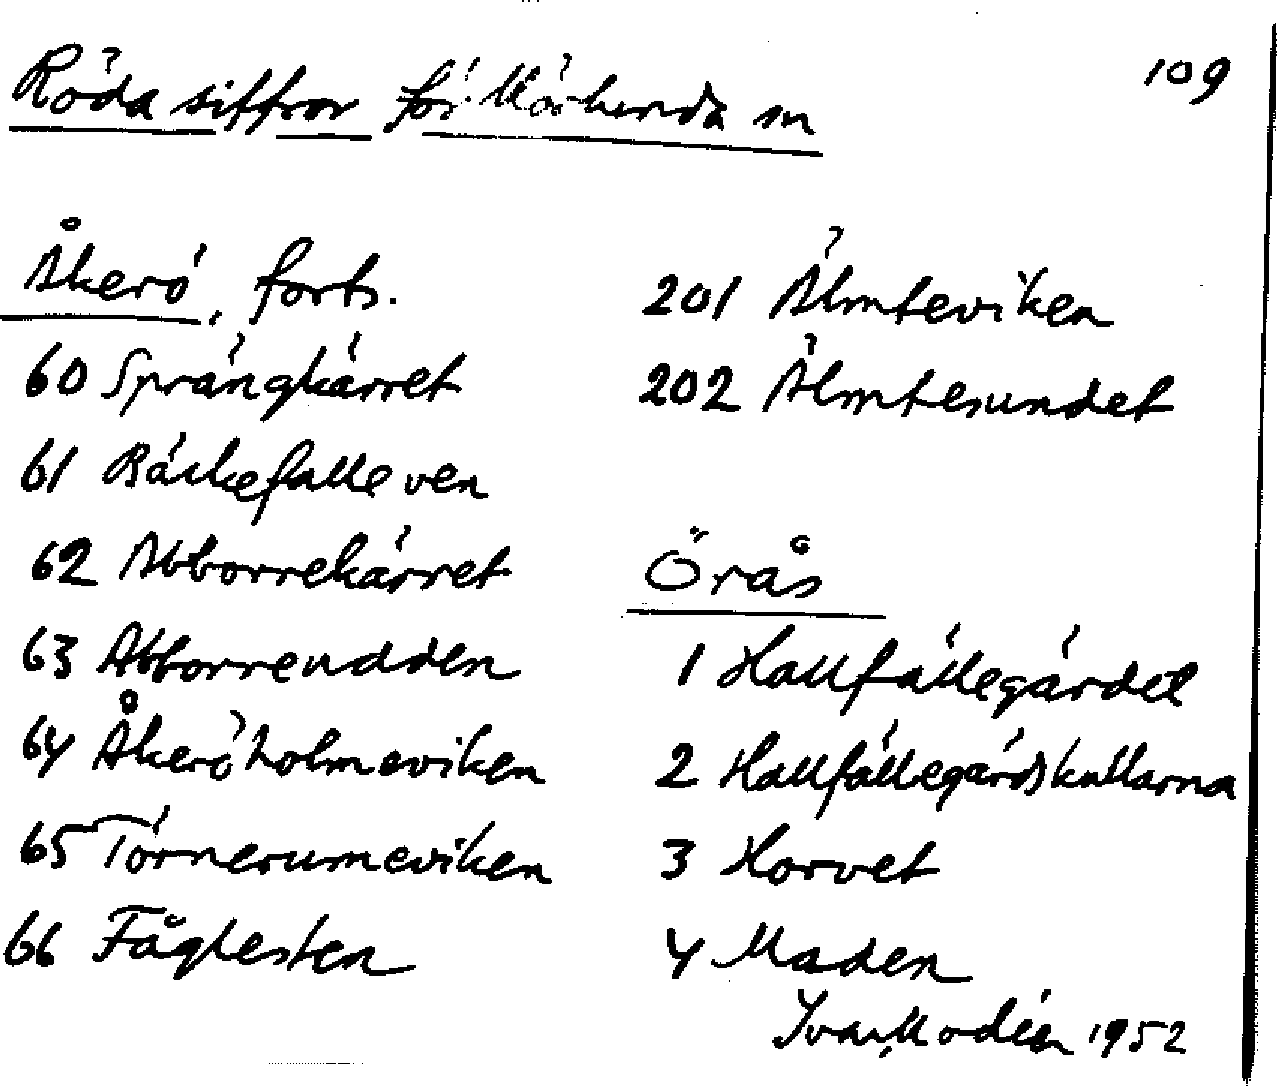 109
Röda siffror för Mörlunda sn
Åkerö, forts.
60 Sprängkärret
61 Bäckefalleven
62 Abborrekärret
63 Abborrendden
64 Åkeröholmeviken
65 Törnerumeviken
66 Fåglesten
201 Älmteviken
202 Älmtesundet
Örås
1 Hallfällegärdet
2 Hallfällegärdskullarna
3 Horvet
4 Maden
Ivar Modéer 1952